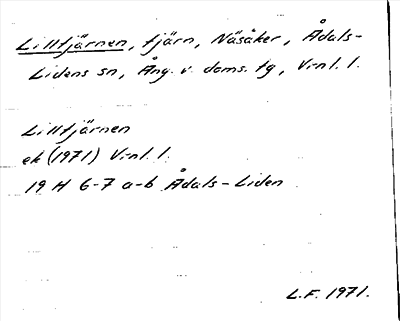 Lilltjärnen, tjärn, Näsåker, Ådals-
Lidens sn, Ång. v. doms. tg, Vrnl. l.
Lilltjärnen
ek (1971) Vrnl. l.
19 H 6-7 a-b Ådals-Liden
L.F. 1971.